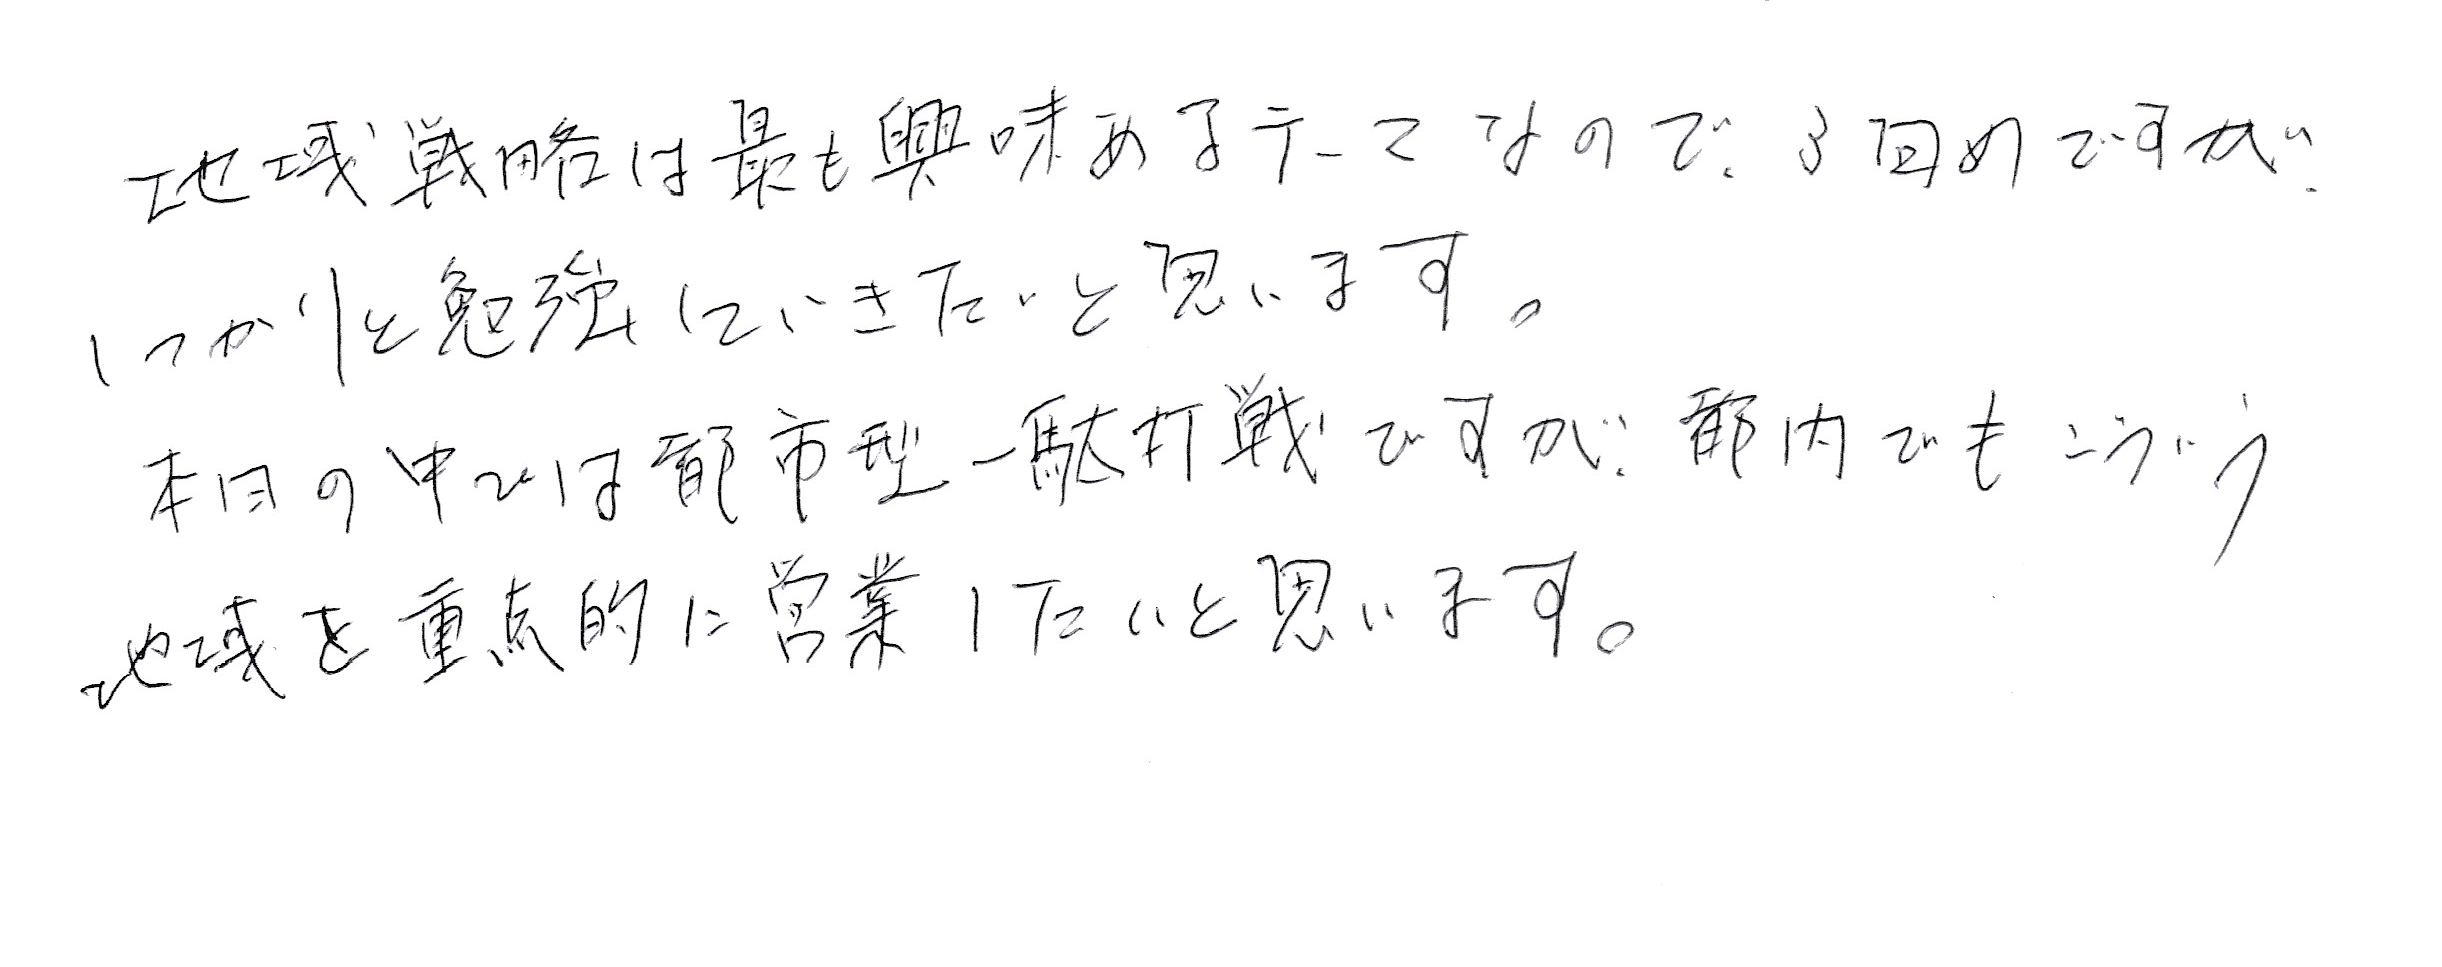 地域戦略は最も興味あるテーマなので、3回めですが、
しっかりと勉強していきたいと思います。
本日の中では都市型一駄打戦ですが、都内でもこういう
地域を重点的に営業したいと思います。